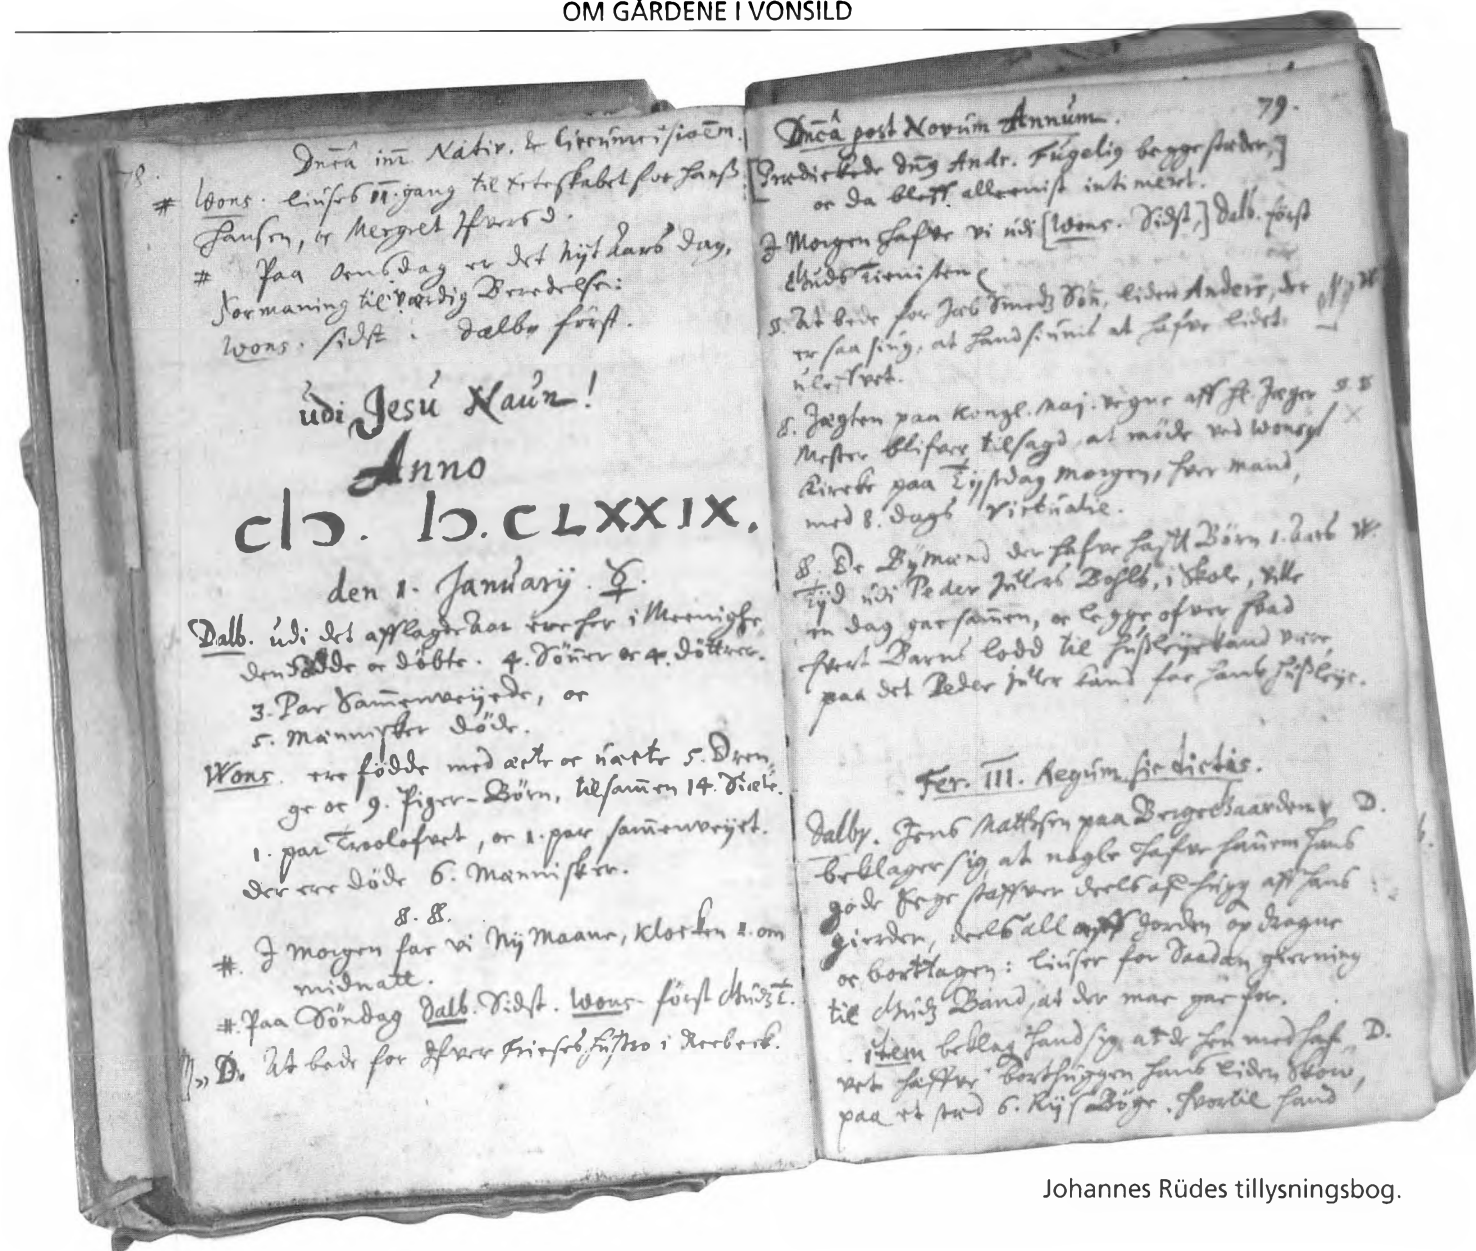 OM GÅRDENE I VONSILD
78.
Dncâ inr Nativ. & Circumcisioēm.
# Wons. liuses II. gang til Ecteskabet for Hanß
Hansen, oc Mergret Ifversd.
# Paa Onsdag er det Nyt Aars Dag,
Formaning til værdig Beredelse:
Wons. sidst. Dalby först.
udi Jesu Naun!
Anno
cIↄ. Iↄ. CLXXIX.
den 1. Januarij. ☿.
Dalb. udi det afflagde Aar ere her i Meenighe
den Födde oc döbte. 4. Sönner oc 4. döttrer.
3. Par Sammenveijede, oc
5. Människer döde.
Wons. ere födde med æcte oc uæcte 5. Dren
ge oc 9. Piger-Börn, tilsam̄en 14. Siæle.
1. par Troolofvet, oc 1. par sam̄enveijet.
der ere döde 6. Människer.
8. 8.
#. I morgen faar vi Ny Maane, Klocken 1. om
midnatt.
#. Paa Söndag Dalb. Sidst. Wons. först Gudz T.
D. At bede for Ifver Frieses Hustro i Reebeck.
79.
Dncâ post Novum Annum.
[Prædickede Dng Andr. Fugelig begge stæder,]
oc da bleff alleenist intimeret.
I Morgen hafve vi udi [Wons. Sidst,] Dalb. först
Guds Tieniste.
8. At bede for Jess Smedz Sön, liden Anders, der W
er saa siug, at hand siunis at hafve lidet
8. Jægten paa Kongl. Maj. vegne aff H. Jæger 8. 8
Mester blifver tilsagd, at möde ved Wonsyl
Kircke paa Tijsdag Morgen, hver Mand,
med 8. dags Victualie.
8. De Bymænd der hafve hafft Börn 1. Aars W.
Tijd udi Peder Julers Bohls, i Skole, ville
en dag gaae sammen, oc legge ofver hvad
hvert Barns lodd til Hußleye kand være,
paa det Peder Juler kand faae hans Hußleye.
Fer. III. Regum sic dictâs.
Dalby. Jens Mattesen paa Bergegaarden D.
beklager sig, at nogle hafve hannem hans
gode Ege staffver deels aff hugg aff hans
gierder, deels all aff Jorden op dragne
oc borttagen: liuser for Saadan gierning
til Gudz Band, at der maa gaae for.
item beklag. hand sig, at de hen med haf D.
vet haffve borthuggen hans liden Skow,
paa et stæd 6. Rijs Böge. hvortil hand
Johannes Rüdes tillysningsbog.